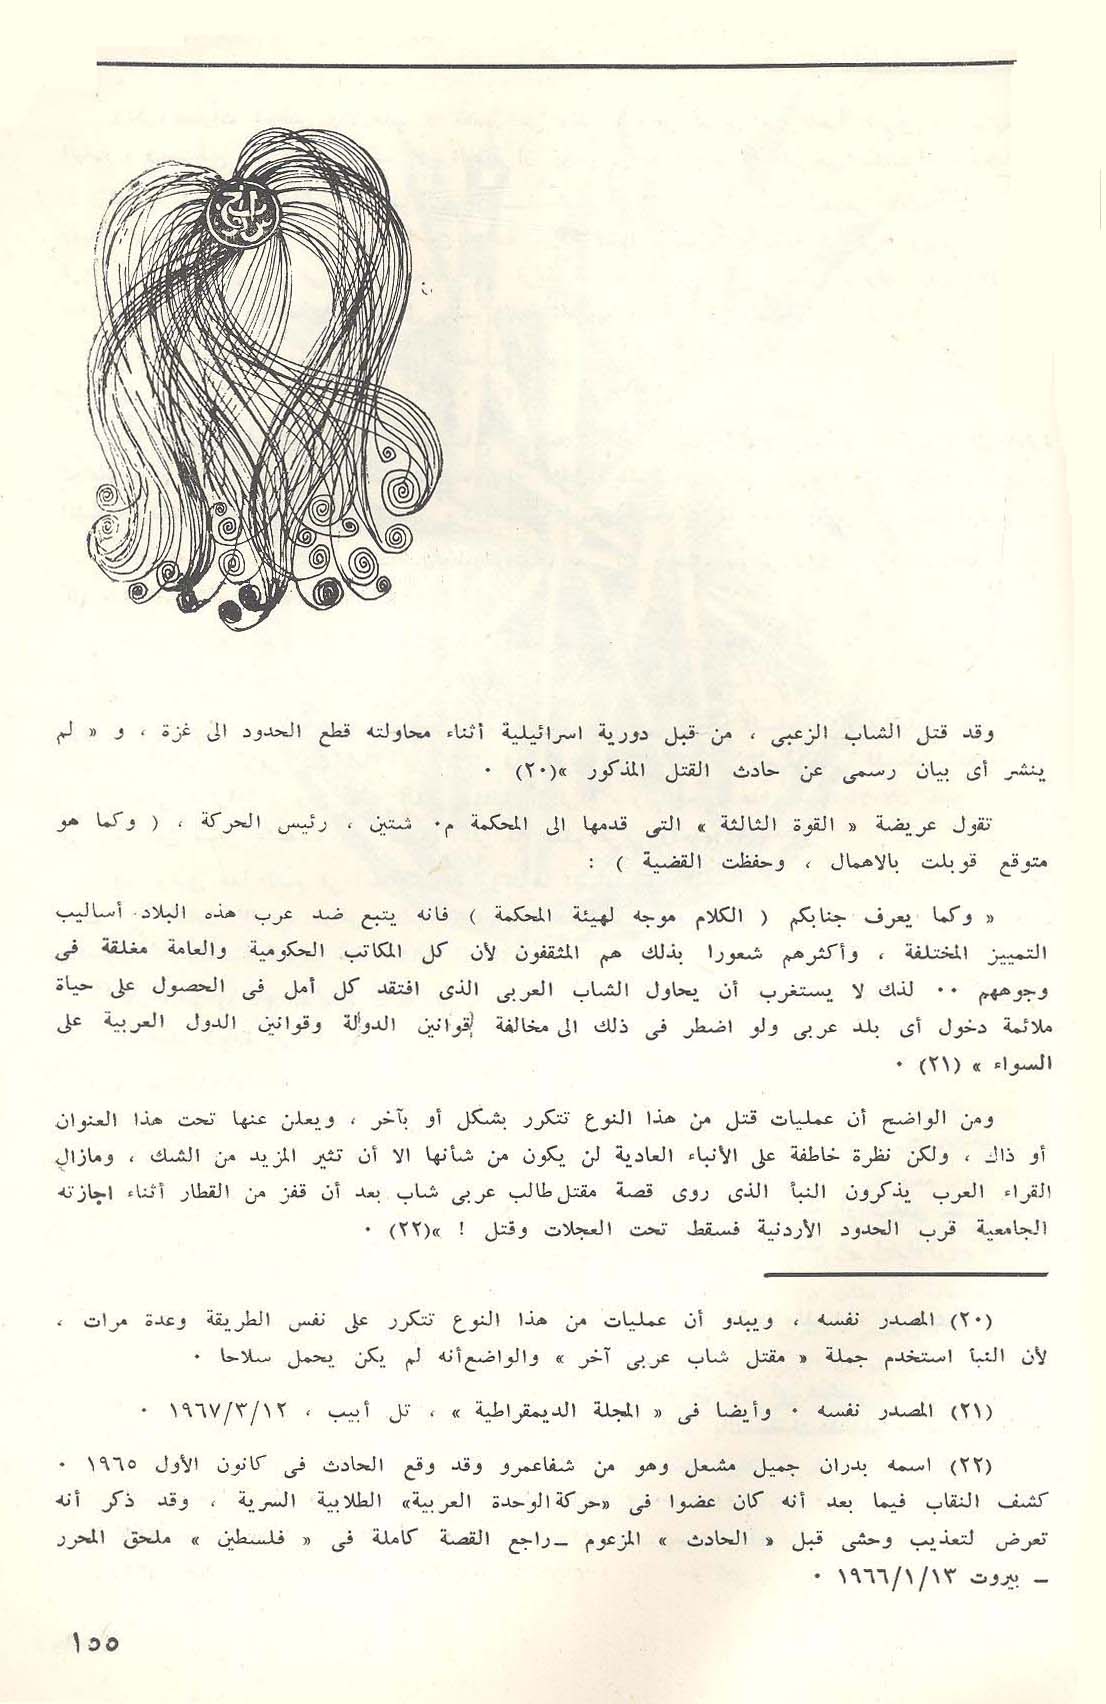 وقد قتل الشاب الزعبى ، من قبل دورية اسرائيلية أثناء محاولته قطع الحدود الى غزة ، و « لم
ينشر أى بيان رسمى عن حادث القتل المذكور »(٢٠) ٠
تقول عريضة « القوة الثالثة » التى قدمها الى المحكمة م٠ شتين ، رئيس الحركة ، ( وكما هو
متوقع قوبلت بالاهمال ، وحفظت القضية ) :
« وكما يعرف جنابكم ( الكلام موجه لهيئة المحكمة ) فانه يتبع ضد عرب هذه البلاد أساليب
التمييز المختلفة ، وأكثرهم شعورا بذلك هم المثقفون لأن كل المكاتب الحكومية والعامة مغلقة فى
وجوههم ٠٠ لذلك لا يستغرب أن يحاول الشاب العربى الذى افتقد كل أمل فى الحصول على حياة
ملائمة دخول أى بلد عربى ولو اضطر فى ذلك الى مخالفة قوانين الدولة وقوانين الدول العربية على
السواء » (٢١) ٠
ومن الواضح أن عمليات قتل من هذا النوع تتكرر بشكل أو بآخر ، ويعلن عنها تحت هذا العنوان
أو ذاك ، ولكن نظرة خاطفة على الأنباء العادية لن يكون من شأنها الا أن تثير المزيد من الشك ، ومازال
القراء العرب يذكرون النبأ الذى روى قصة مقتل طالب عربى شاب بعد أن قفز من القطار أثناء اجازته
الجامعية قرب الحدود الأردنية فسقط تحت العجلات وقتل ! »(٢٢) ٠
(٢٠) المصدر نفسه ، ويبدو أن عمليات من هذا النوع تتكرر على نفس الطريقة وعدة مرات ،
لأن النبأ استخدم جملة « مقتل شاب عربى آخر » والواضع أنه لم يكن يحمل سلاحا ٠
(٢١) المصدر نفسه ٠ وأيضا فى « المجلة الديمقراطية » ، تل أبيب ، ١٩٦٧/٣/١٢ ٠
(٢٢) اسمه بدران جميل مشعل وهو من شفاعمرو وقد وقع الحادث فى كانون الأول ١٩٦٥ ٠
كشف النقاب فيما بعد أنه كان عضوا فى «حركة الوحدة العربية» الطلابية السرية ، وقد ذكر أنه
تعرض لتعذيب وحشى قبل « الحادث » المزعوم ــ راجع القصة كاملة فى « فلسطين » ملحق المحرر
ــ بيروت ١٩٦٦/١/١٣ ٠
١٥٥